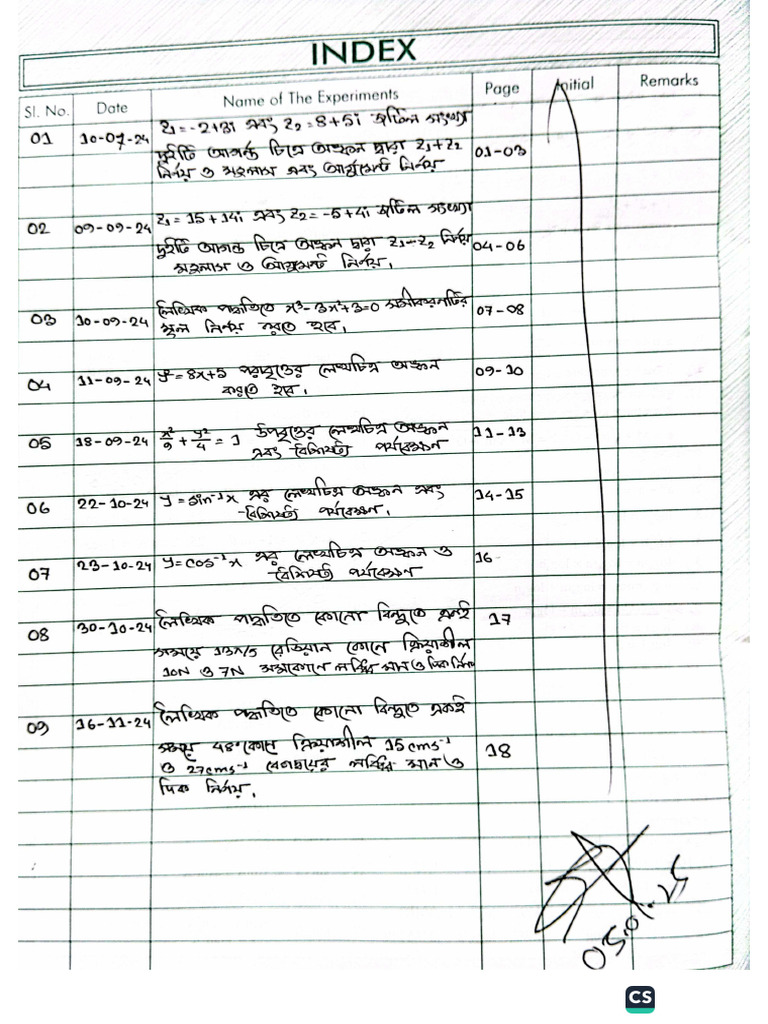 INDEX
Sl. No. Date Name of The Experiments Page Initial Remarks
01 10-07-24 Z1=-2+3i এবং Z2=8+5i জটিল সংখ্যা
দুইটি আর্গন্ড চিত্রে অঙ্কন দ্বারা Z1+Z2 01-03
নির্ণয় ও মডুলাস এবং আর্গুমেন্ট নির্ণয়
02 09-09-24 Z1=15+14i এবং Z2=-5+4i জটিল সংখ্যা
দুইটি আর্গন্ড চিত্রে অঙ্কন দ্বারা Z1-Z2 নির্ণয় 04-06
মডুলাস ও আর্গুমেন্ট নির্ণয়।
03 10-09-24 লৈখিক পদ্ধতিতে x³-3x²+3=0 সমীকরণটির 07-08
মূল নির্ণয় করতে হবে।
04 11-09-24 y²=8x+5 পরাবৃত্তের লেখচিত্র অঙ্কন 09-10
করতে হবে।
05 18-09-24 x²/9 + y²/4 = 1 উপবৃত্তের লেখচিত্র অঙ্কন 11-13
এবং বৈশিষ্ট্য পর্যবেক্ষণ
06 22-10-24 y=sin⁻¹x এর লেখচিত্র অঙ্কন এবং 14-15
বৈশিষ্ট্য পর্যবেক্ষণ।
07 23-10-24 y=cos⁻¹x এর লেখচিত্র অঙ্কন ও 16
বৈশিষ্ট্য পর্যবেক্ষণ
08 30-10-24 লৈখিক পদ্ধতিতে কোনো বিন্দুতে একই 17
সময়ে রেডিয়ান কোণে ক্রিয়াশীল
10N ও 7N লব্ধির মান ও দিক নির্ণয়
09 16-11-24 লৈখিক পদ্ধতিতে কোনো বিন্দুতে একই
সময়ে 48° কোণে ক্রিয়াশীল 15cms⁻¹ 18
ও 27cms⁻¹ বেগদ্বয়ের লব্ধির মান ও
দিক নির্ণয়।
05.01.25
CS